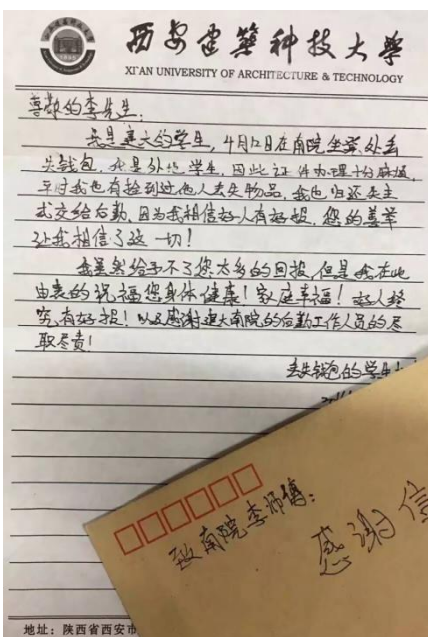 西安建筑科技大学
XI'AN UNIVERSITY OF ARCHITECTURE & TECHNOLOGY
尊敬的李先生:
我是建大的学生,4月12日在南院坐车处丢
失钱包,我是外地学生,因此证件办理十分麻烦,
平时我也有捡到过他人丢失物品,我也归还失主
或交给后勤,因为我相信好人有好报,您的善举
让我相信了这一切!
我虽然给予不了您太多的回报,但是我在此
由衷的祝福您身体健康!家庭幸福!好人终
究有好报!以及感谢建大南院的后勤工作人员的尽
职尽责!
丢失钱包的学生
致南院李师傅:
感谢信
地址:陕西省西安市